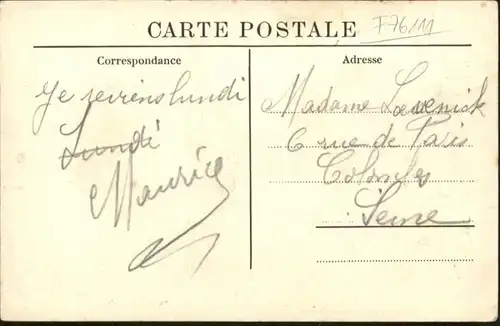 CARTE POSTALE
F76111
Correspondance
Adresse
Je reviens lundi
Lundi
Maurice
Madame Loevenick
6 rue de Paris
Colombes
Seine